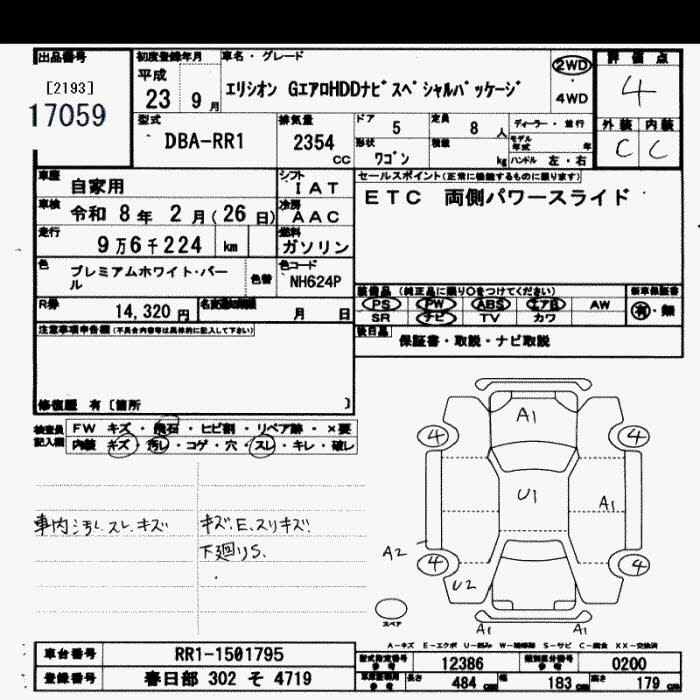 出品番号
[2193]
17059
初度登録年月
平成
23 9月
車名・グレード
エリシオン GエアロHDDナビスペシャルパッケージ
2WD
4WD
評価点
4
外装 内装
C C
型式
DBA-RR1
排気量
2354
cc
ドア
5
定員
8 人
ディーラー・並行
形状
ワゴン
積載
kg
モデル年式
年
ハンドル 左・右
車歴
自家用
シフト
IAT
車検
令和 8年 2月(26日)
冷房
AAC
走行
9万6千224 km
燃料
ガソリン
セールスポイント(正常に機能するものに限ります)
ETC 両側パワースライド
色
プレミアムホワイト・パール
色替
色コード
NH624P
R券
14,320 円
名変期限
月 日
装備品 (純正品に限り○をつけてください)
PS PW ABS エアB AW
SR ナビ TV カワ
新車保証書
有・無
後日品
保証書・取説・ナビ取説
注意事項申告欄(不具合内容等は具体的に記入して下さい)
修復歴 有 [箇所 ]
検査員記入欄
FW キズ・飛石・ヒビ割・リペア跡・×要
内装 キズ・汚レ・コゲ・穴・スレ・キレ・破レ
車内汚レ.スレ.キズ
キズ.E.スリキズ.
下廻りS.
A1
4 4
U1
A1
A2
4 4
U2
スペア
A1 A1
A-キズ E-エクボ U-凹み W-補修跡 S-サビ C-腐食 XX-交換済
車台番号
RR1-1501795
登録番号
春日部 302 そ 4719
型式指定番号
参考
12386
類別区分番号
参考
0200
長さ
484 cm
幅
183 cm
高さ
179 cm